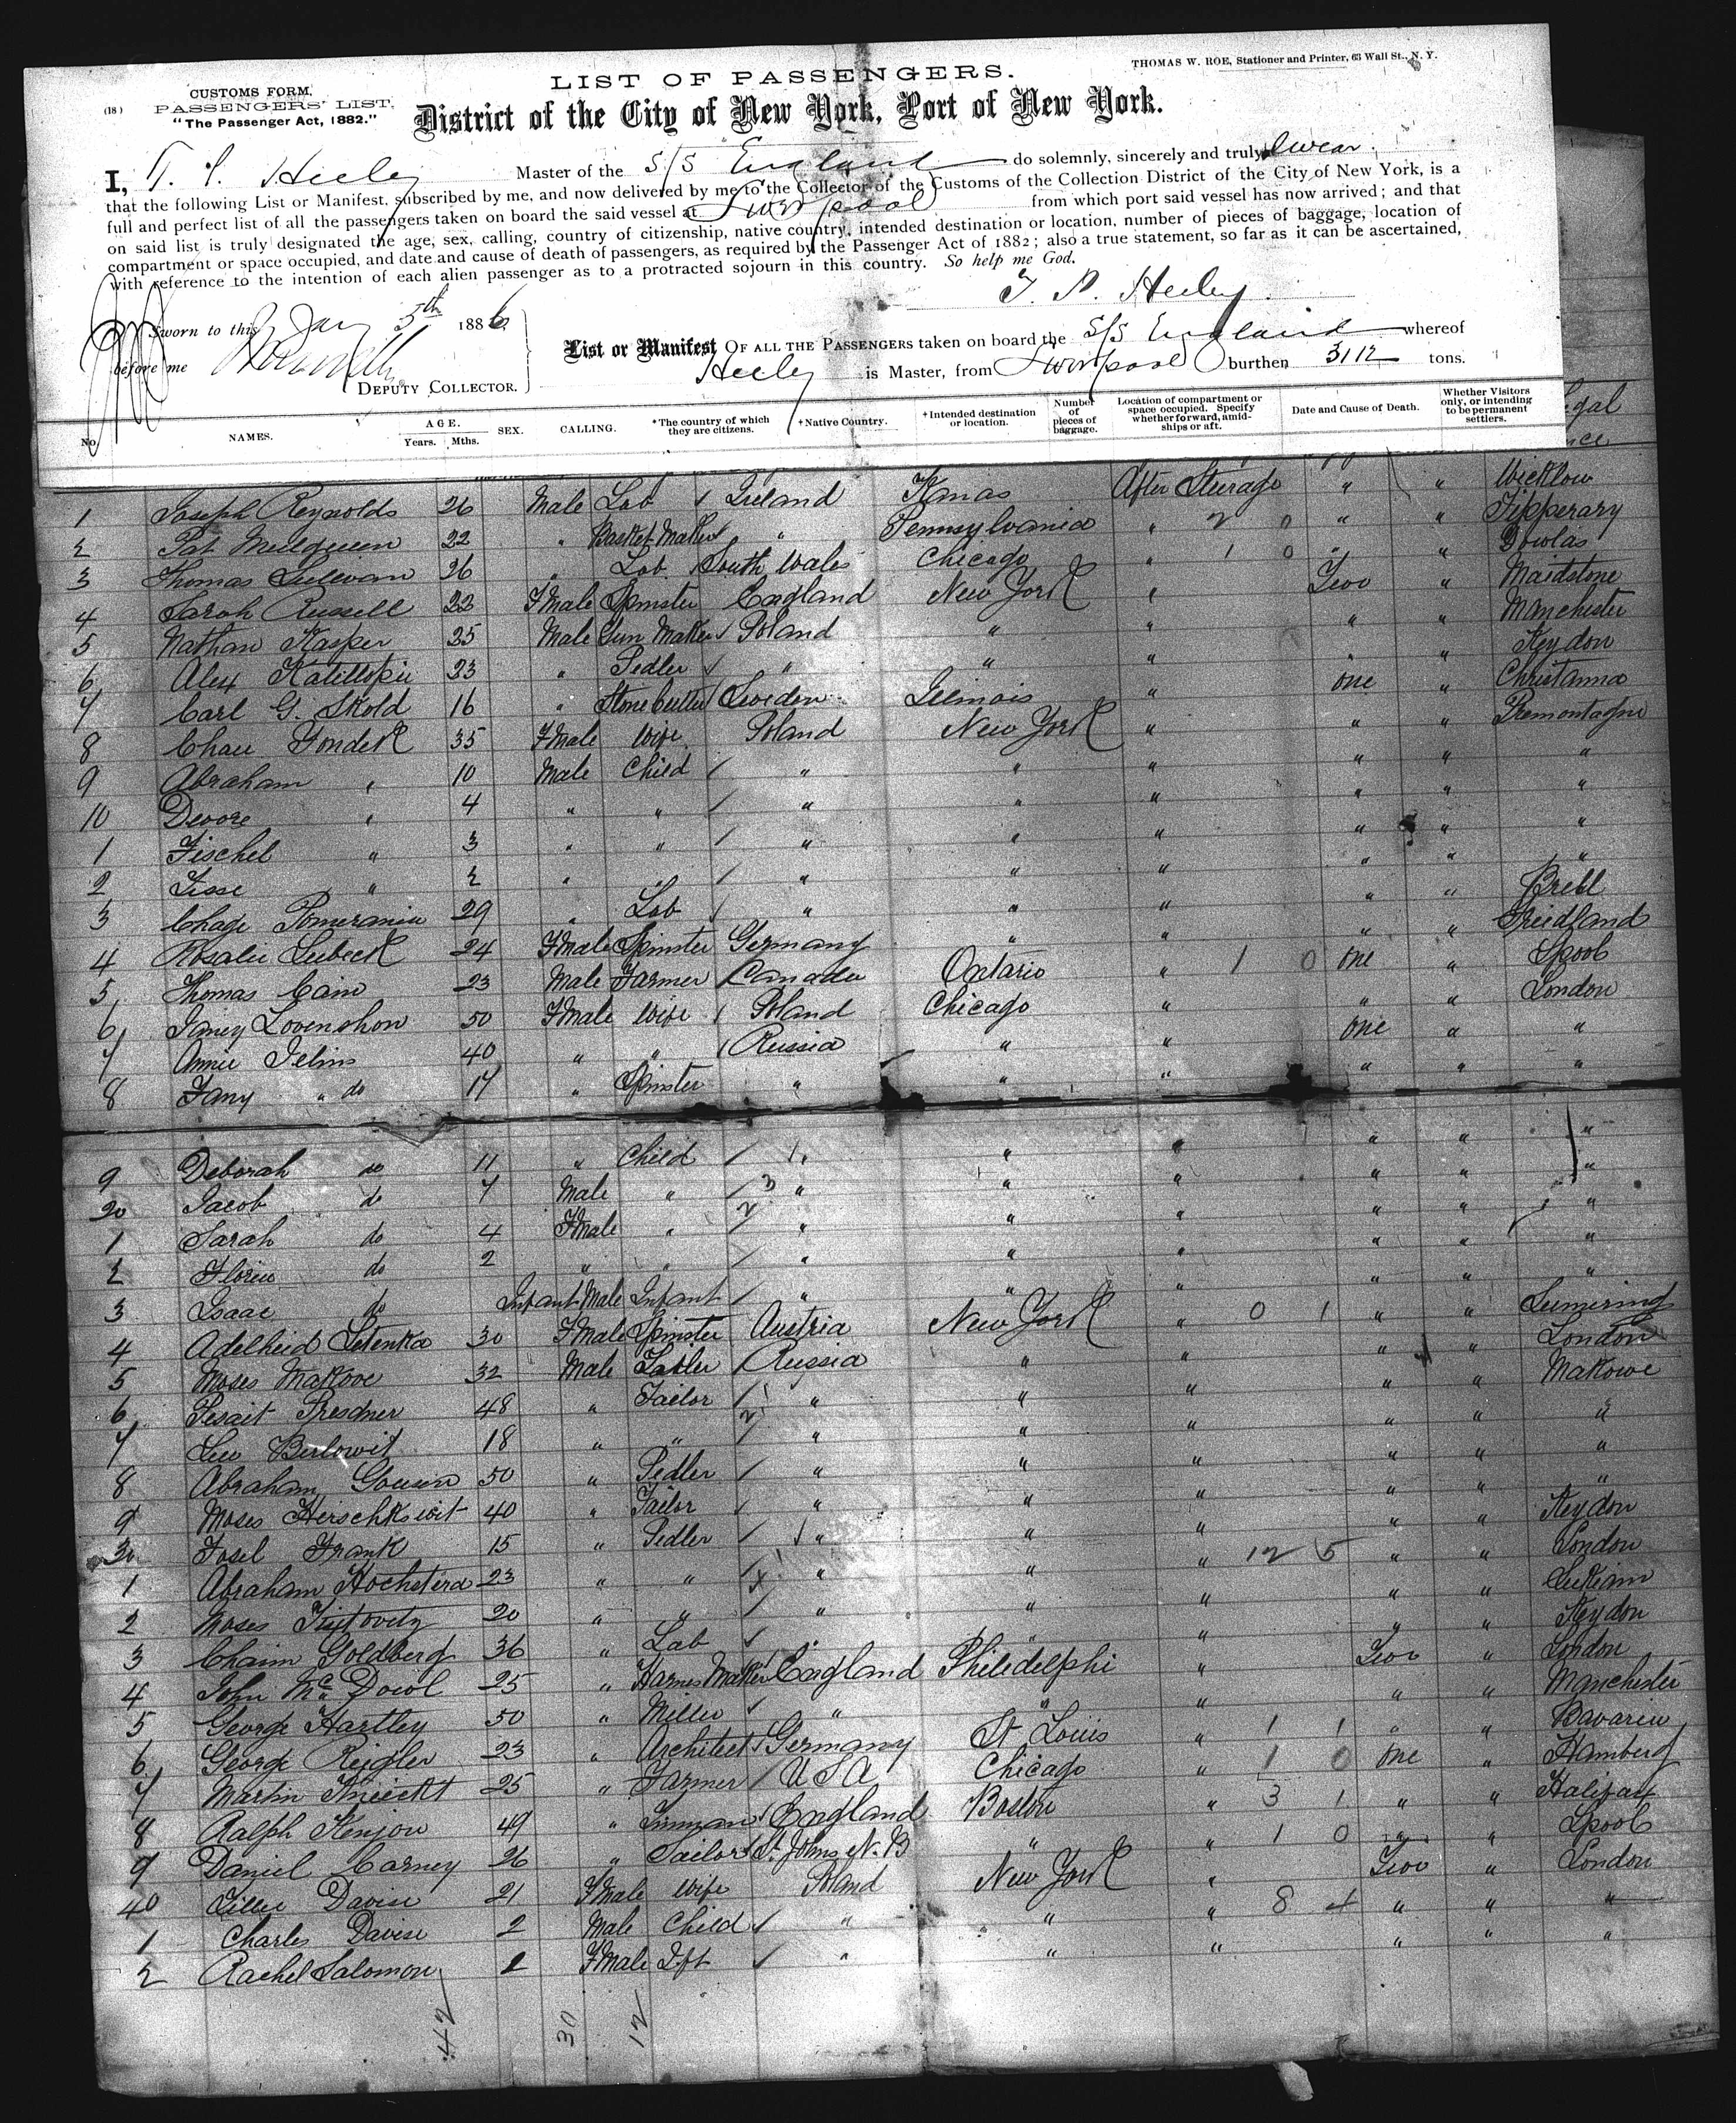 THOMAS W. ROE, Stationer and Printer, 63 Wall St., N. Y.
LIST OF PASSENGERS.
(18) CUSTOMS FORM,
PASSENGERS' LIST,
"The Passenger Act, 1882."
District of the City of New York, Port of New York.
I, T. P. Heeley Master of the S/S England do solemnly, sincerely and truly swear
that the following List or Manifest, subscribed by me, and now delivered by me to the Collector of the Customs of the Collection District of the City of New York, is a
full and perfect list of all the passengers taken on board the said vessel at Liverpool from which port said vessel has now arrived; and that
on said list is truly designated the age, sex, calling, country of citizenship, native country, intended destination or location, number of pieces of baggage, location of
compartment or space occupied, and date and cause of death of passengers, as required by the Passenger Act of 1882; also a true statement, so far as it can be ascertained,
with reference to the intention of each alien passenger as to a protracted sojourn in this country. So help me God.
T. P. Heeley
Sworn to this Jany 5th 1886
before me
DEPUTY COLLECTOR.
List or Manifest OF ALL THE PASSENGERS taken on board the S/S England whereof
Heeley is Master, from Liverpool burthen 3112 tons.
No. NAMES. AGE. Years. Mths. SEX. CALLING. *The country of which they are citizens. †Native Country. †Intended destination or location. Number of pieces of baggage. Location of compartment or space occupied. Specify whether forward, amidships or aft. Date and Cause of Death. Whether Visitors only, or intending to be permanent settlers.
1 Joseph Reynolds 26 Male Lab Ireland Kanas After Sturage " " Wicklow
2 Pat Mulqueen 22 " Basket Maker " Pennsylvania " 2 0 " " Tipperary
3 Thomas Sullivan 26 " Lab South Wales Chicago " 1 0 " " Dowlas
4 Sarah Russell 22 FMale Spinster England New York " Two " Maidstone
5 Nathan Kasper 25 Male Gun Maker Poland " " " " Manchester
6 Alex 23 " Pedler " " " " " Keydon
7 Carl G. Skold 16 " Stone Cutter Sweden Illinois " one " Christanna
8 Chaie Fondek 35 FMale Wife Poland New York " " "
9 Abraham " 10 Male Child " " " " " "
10 Devore " 4 " " " " " " " "
1 Fischel " 3 " " " " " " " "
2 Lisse " 2 " " " " " " " "
3 Chage Pomeranie 29 " Lab " " " " "
4 Rosalie Lubeck 24 FMale Spinster Germany " " " " Friedland
5 Thomas Cain 23 Male Farmer Canada Ontario " 1 0 one " Lpool
6 Janey Lovenshon 50 FMale Wife Poland Chicago " " " London
7 Annie Jelins 40 " " Russia " " one " "
8 Fany " do 17 " Spinster " " " " " "
9 Deborah do 11 " Child " " " " " "
20 Jacob do 7 Male " 3 " " " " " "
1 Sarah do 4 FMale " 2 " " " " " "
2 Florie do 2 " " " " " " " "
3 Isaac do Infant Male Infant " " " " " "
4 Adelheid Setenka 30 FMale Spinster Austria New York " 0 1 " "
5 Moses Makove 32 Male Russia " " " " London
6 Pesait Presdner 48 " Tailor " " " " " Makowe
7 Leu Berlowit 18 " " " " " " " "
8 Abraham 50 " Pedler " " " " " "
9 Moses Hirschkowit 40 " Tailor " " " " " "
30 Josel Frank 15 " Pedler " " " " " Keydon
1 Abraham 23 " " " " " 12 5 " " London
2 Moses 20 " " " " " " "
3 Chaim Goldberg 36 " Lab " " " " " Keydon
4 John Mc Dowl 25 " Harnes Maker England Philedelphi " Two " London
5 George Hartley 50 " Miller " " " " " Manchester
6 George Reigler 23 " Architect Germany St Louis " 1 1 " " Bavaria
7 Martin Knieckt 25 " Farmer U S A Chicago " 1 0 one " Hamberg
8 Ralph Kenjon 49 " England Boston " 3 1 " " Halifax
9 Daniel Carney 26 " Sailor St. Johns N. B " " 1 0 " " Lpool
40 Lillie Davise 21 FMale Wife Poland New York " Two " London
1 Charles Davise 2 Male Child " " " 8 4 " " "
2 Rachel Salomon 1 FMale Ift " " " " " "
42 30 12